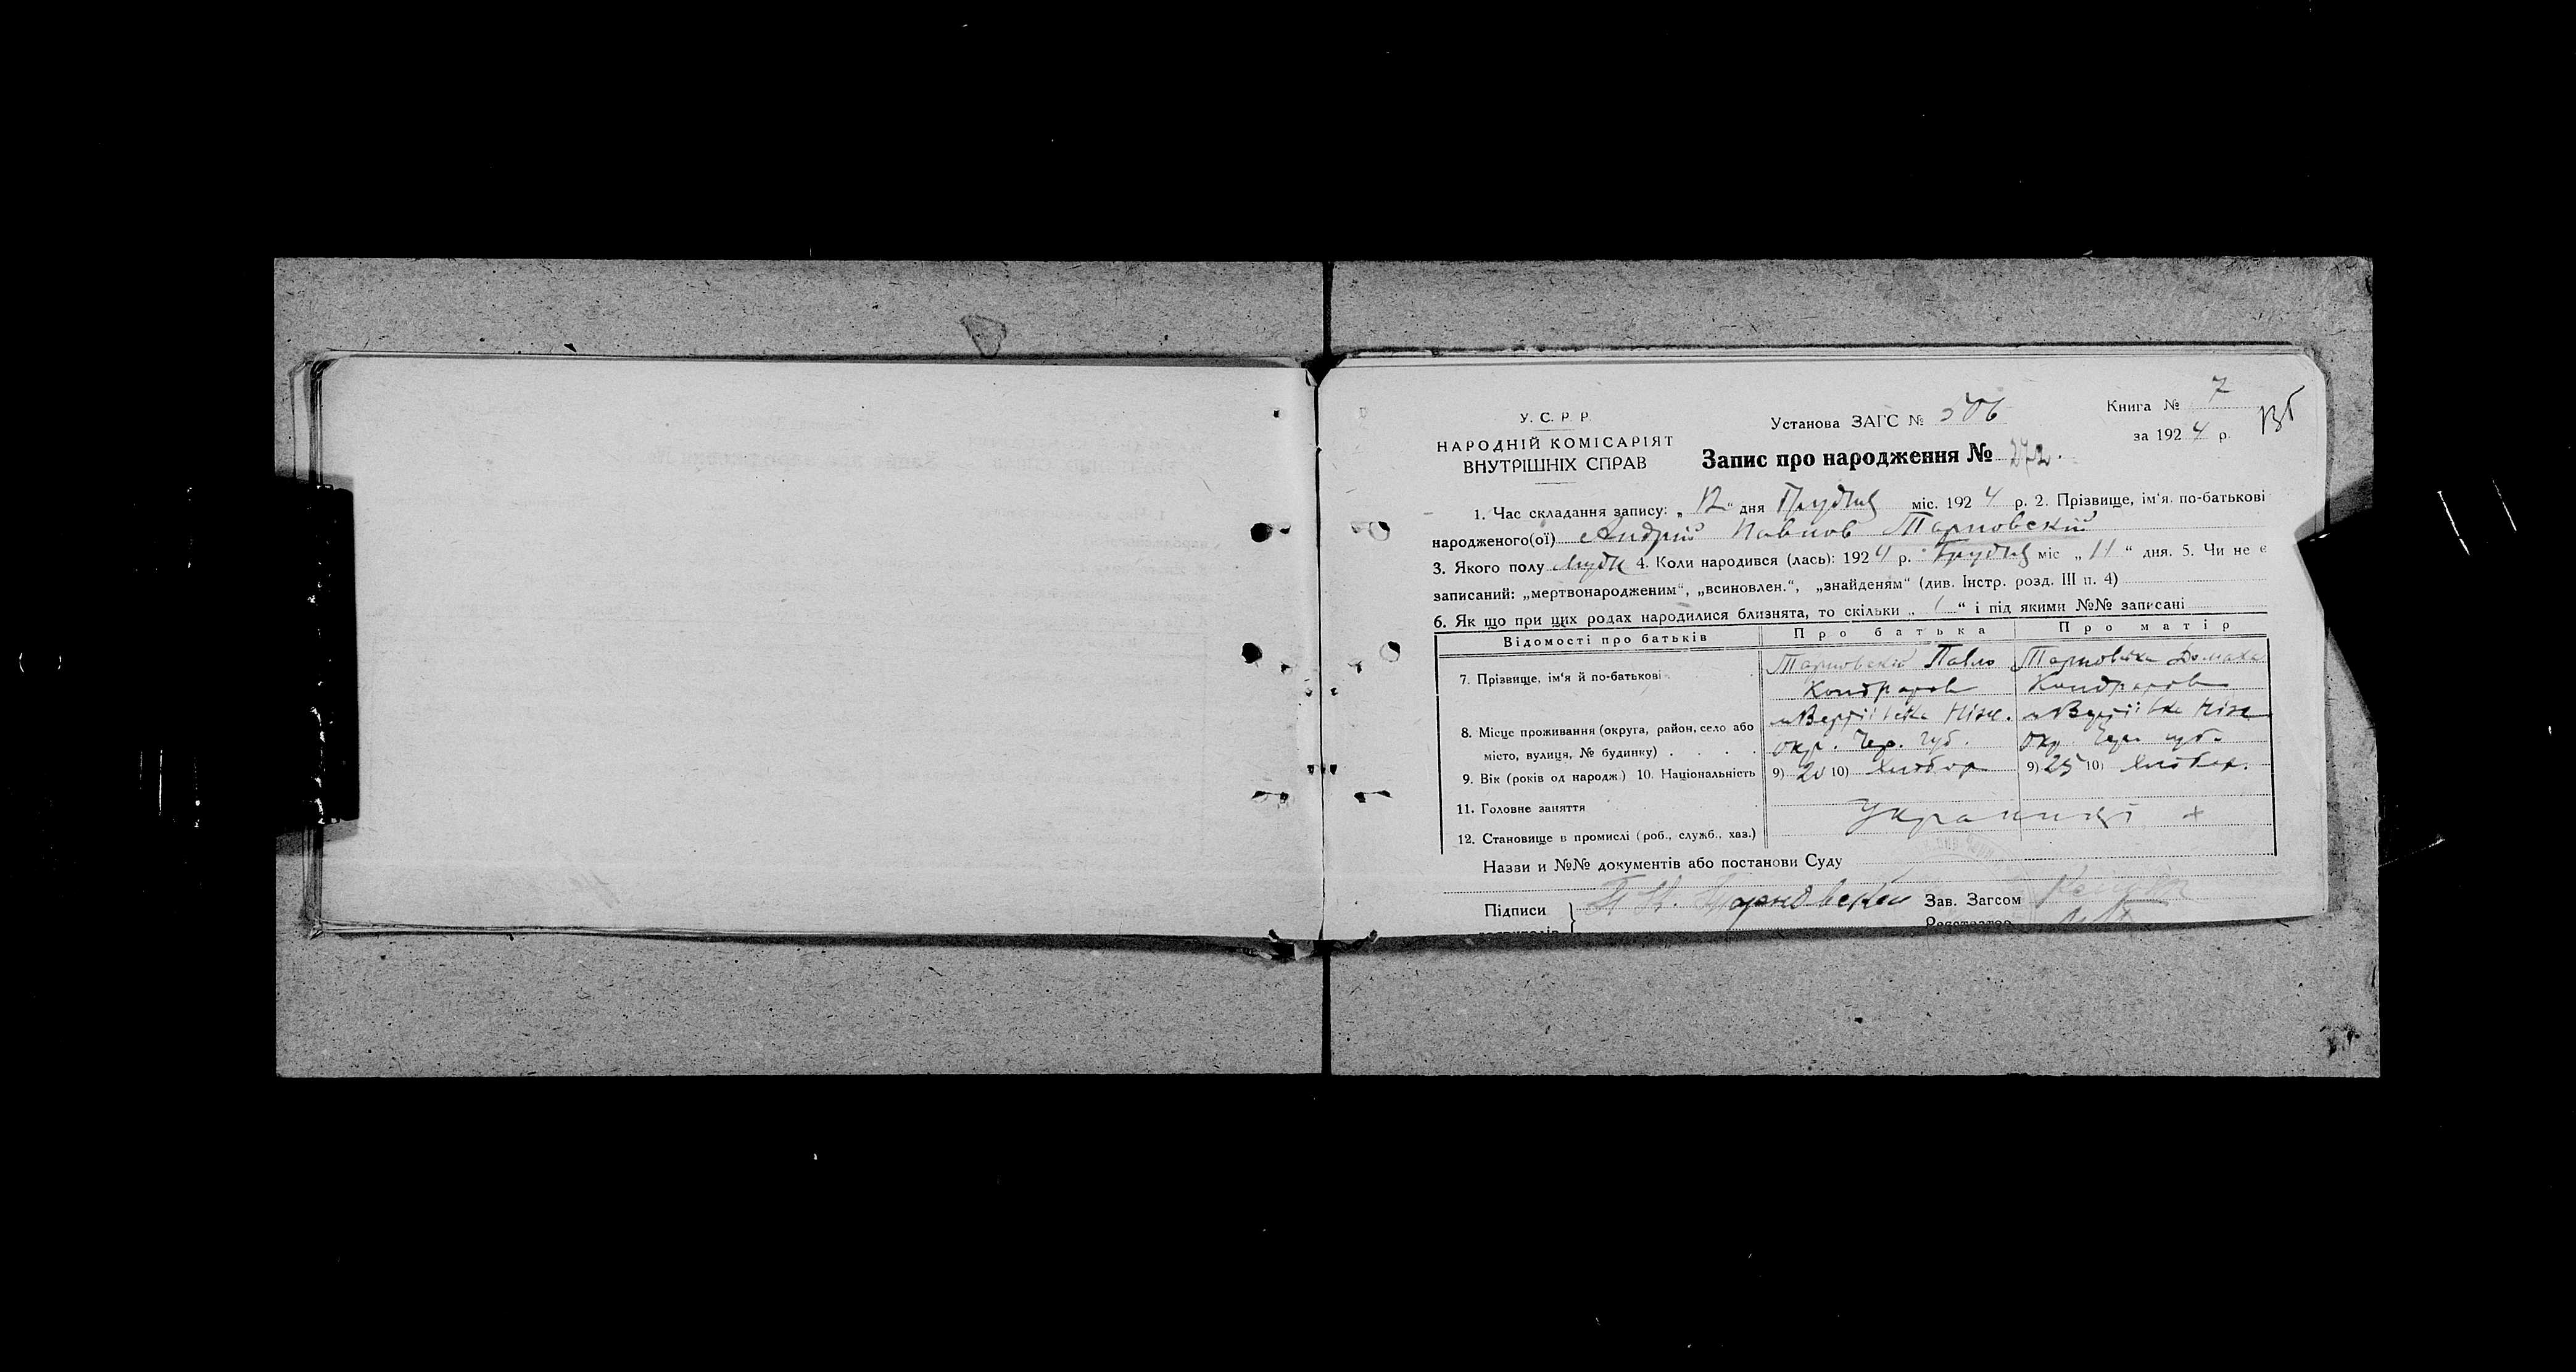 У. С. Р. Р.
НАРОДНІЙ КОМІСАРІЯТ
ВНУТРІШНІХ СПРАВ
Установа ЗАГС № 506
Запис про народження № 272.
Книга № 7
за 1924 р.
1. Час складання запису: „12“ дня Грудня міс. 1924 р. 2. Прізвище, ім'я, по-батькові
народженого(ої) Андрій Павлов Тарновский
3. Якого полу мужс 4. Коли народився (лась): 1924 р. Грудня міс „11“ дня. 5. Чи не є
записаний: „мертвонародженим“, „всиновлен.“, „знайденям“ (див. Інстр. розд. III п. 4)
6. Як що при цих родах народилися близнята, то скільки „1“ і під якими №№ записані
Відомості про батьків Про батька Про матір
7. Прізвище, ім'я й по-батькові Тарновский Павло Тарновська Домаха
Кондратов Кондратов
8. Місце проживання (округа, район, село або м Вертіївка Ніж. м Вертіївка Ніж
місто, вулиця, № будинку) . . . . окр. Чер. губ. окр. Чер. губ.
9. Вік (років од народж.) 10. Національність 9) 20 10) Хлібор 9) 25 10) Хлібор.
11. Головне заняття
Українці +
12. Становище в промислі (роб., служб., хаз.)
Назви и №№ документів або постанови Суду
Підписи П К. Тарновский Зав. Загсом
Реєстратор